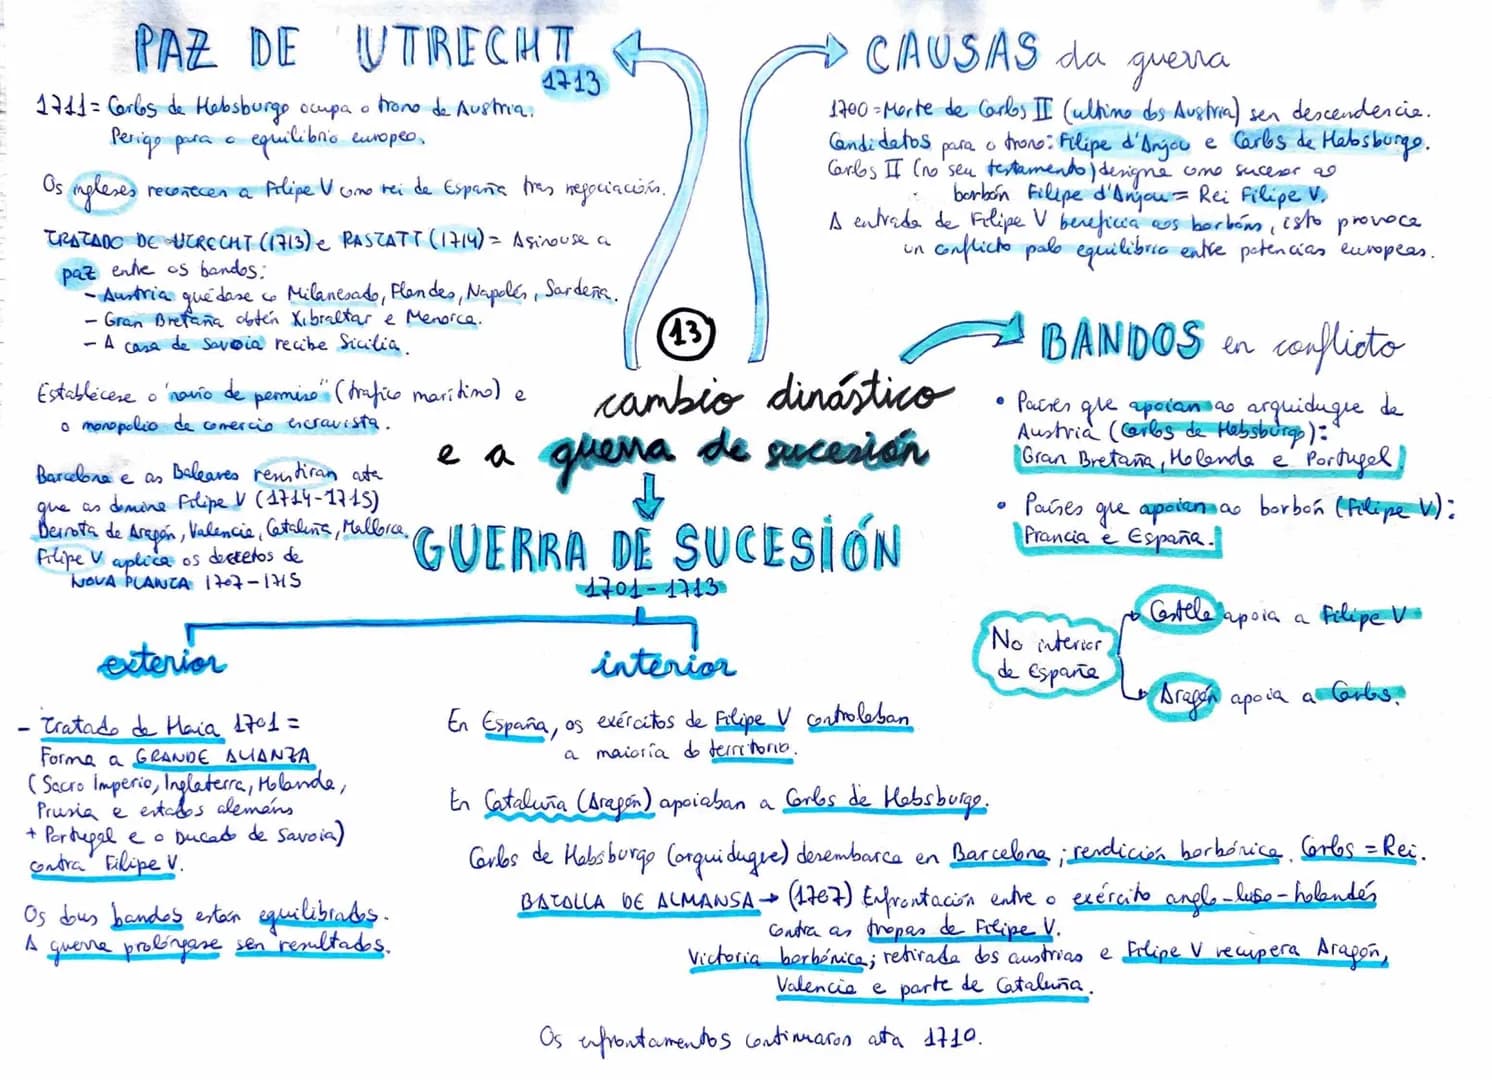 PAZ DE UTRECHT
1713
1711 = Carlos de Habsburgo ocupa o trono de Austria.
Perigo para o equilibrio europeo.
Os ingleses recoñecen a Filipe V como rei de España tras negociación.
TRATADO DE UTRECHT (1713) e RASTATT (1714) = Asinouse a
paz entre os bandos:
- Austria quédase co Milanesado, Flandes, Napolés, Sardeña.
- Gran Bretaña obtén Xibraltar e Menorca.
- A casa de Savoia recibe Sicilia.
Establécese o "navío de permiso" (trafico marítimo) e
o monopolio de comercio escravista.
Barcelona e as Baleares resistiran ata
que as domine Filipe V (1714-1715)
Derrota de Aragón, Valencia, Cataluña, Mallorca.
Filipe V aplica os decretos de
NOVA PLANTA 1707-1715
CAUSAS da guerra
1700 = Morte de Carlos II (ultimo dos Austria) sen descendencia.
Candidatos para o trono: Filipe d'Anjou e Carlos de Habsburgo.
Carlos II (no seu testamento) designa como sucesor ao
borbón Filipe d'Anjou = Rei Filipe V.
A entrada de Filipe V beneficia aos borbóns, isto provoca
un conflicto polo equilibrio entre potencias europeas.
13
cambio dinástico
e a guerra de sucesión
BANDOS en conflicto
• Países que apoian ao arquiduque de
Austria (Carlos de Habsburgo):
Gran Bretaña, Holanda e Portugal
• Países que apoian ao borbón (Filipe V):
Francia e España.
No interior
de España
Castela apoia a Filipe V
Aragón apoia a Carlos.
GUERRA DE SUCESIÓN
1701-1713
exterior
- Tratado de Haia 1701 =
Forma a GRANDE ALIANZA
(Sacro Imperio, Inglaterra, Holanda,
Prusia e estados alemáns
+ Portugal e o Ducado de Savoia)
contra Filipe V.
Os dous bandos están equilibrados.
A guerra prolóngase sen resultados.
interior
En España, os exércitos de Filipe V controlaban
a maioría do territorio.
En Cataluña (Aragón) apoiaban a Carlos de Habsburgo.
Carlos de Habsburgo (arquiduque) desembarca en Barcelona; rendición borbónica. Carlos = Rei.
BATALLA DE ALMANSA → (1707) Enfrontación entre o exército anglo-luso-holandés
contra as tropas de Filipe V.
Victoria borbónica; retirada dos austrias e Filipe V recupera Aragón,
Valencia e parte de Cataluña.
Os enfrontamentos continuaron ata 1710.